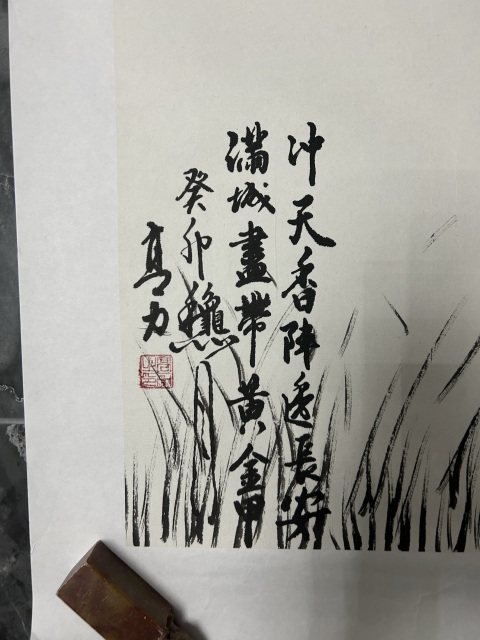 冲天香陣透長安
滿城盡帶黃金甲
癸卯龝月
高力